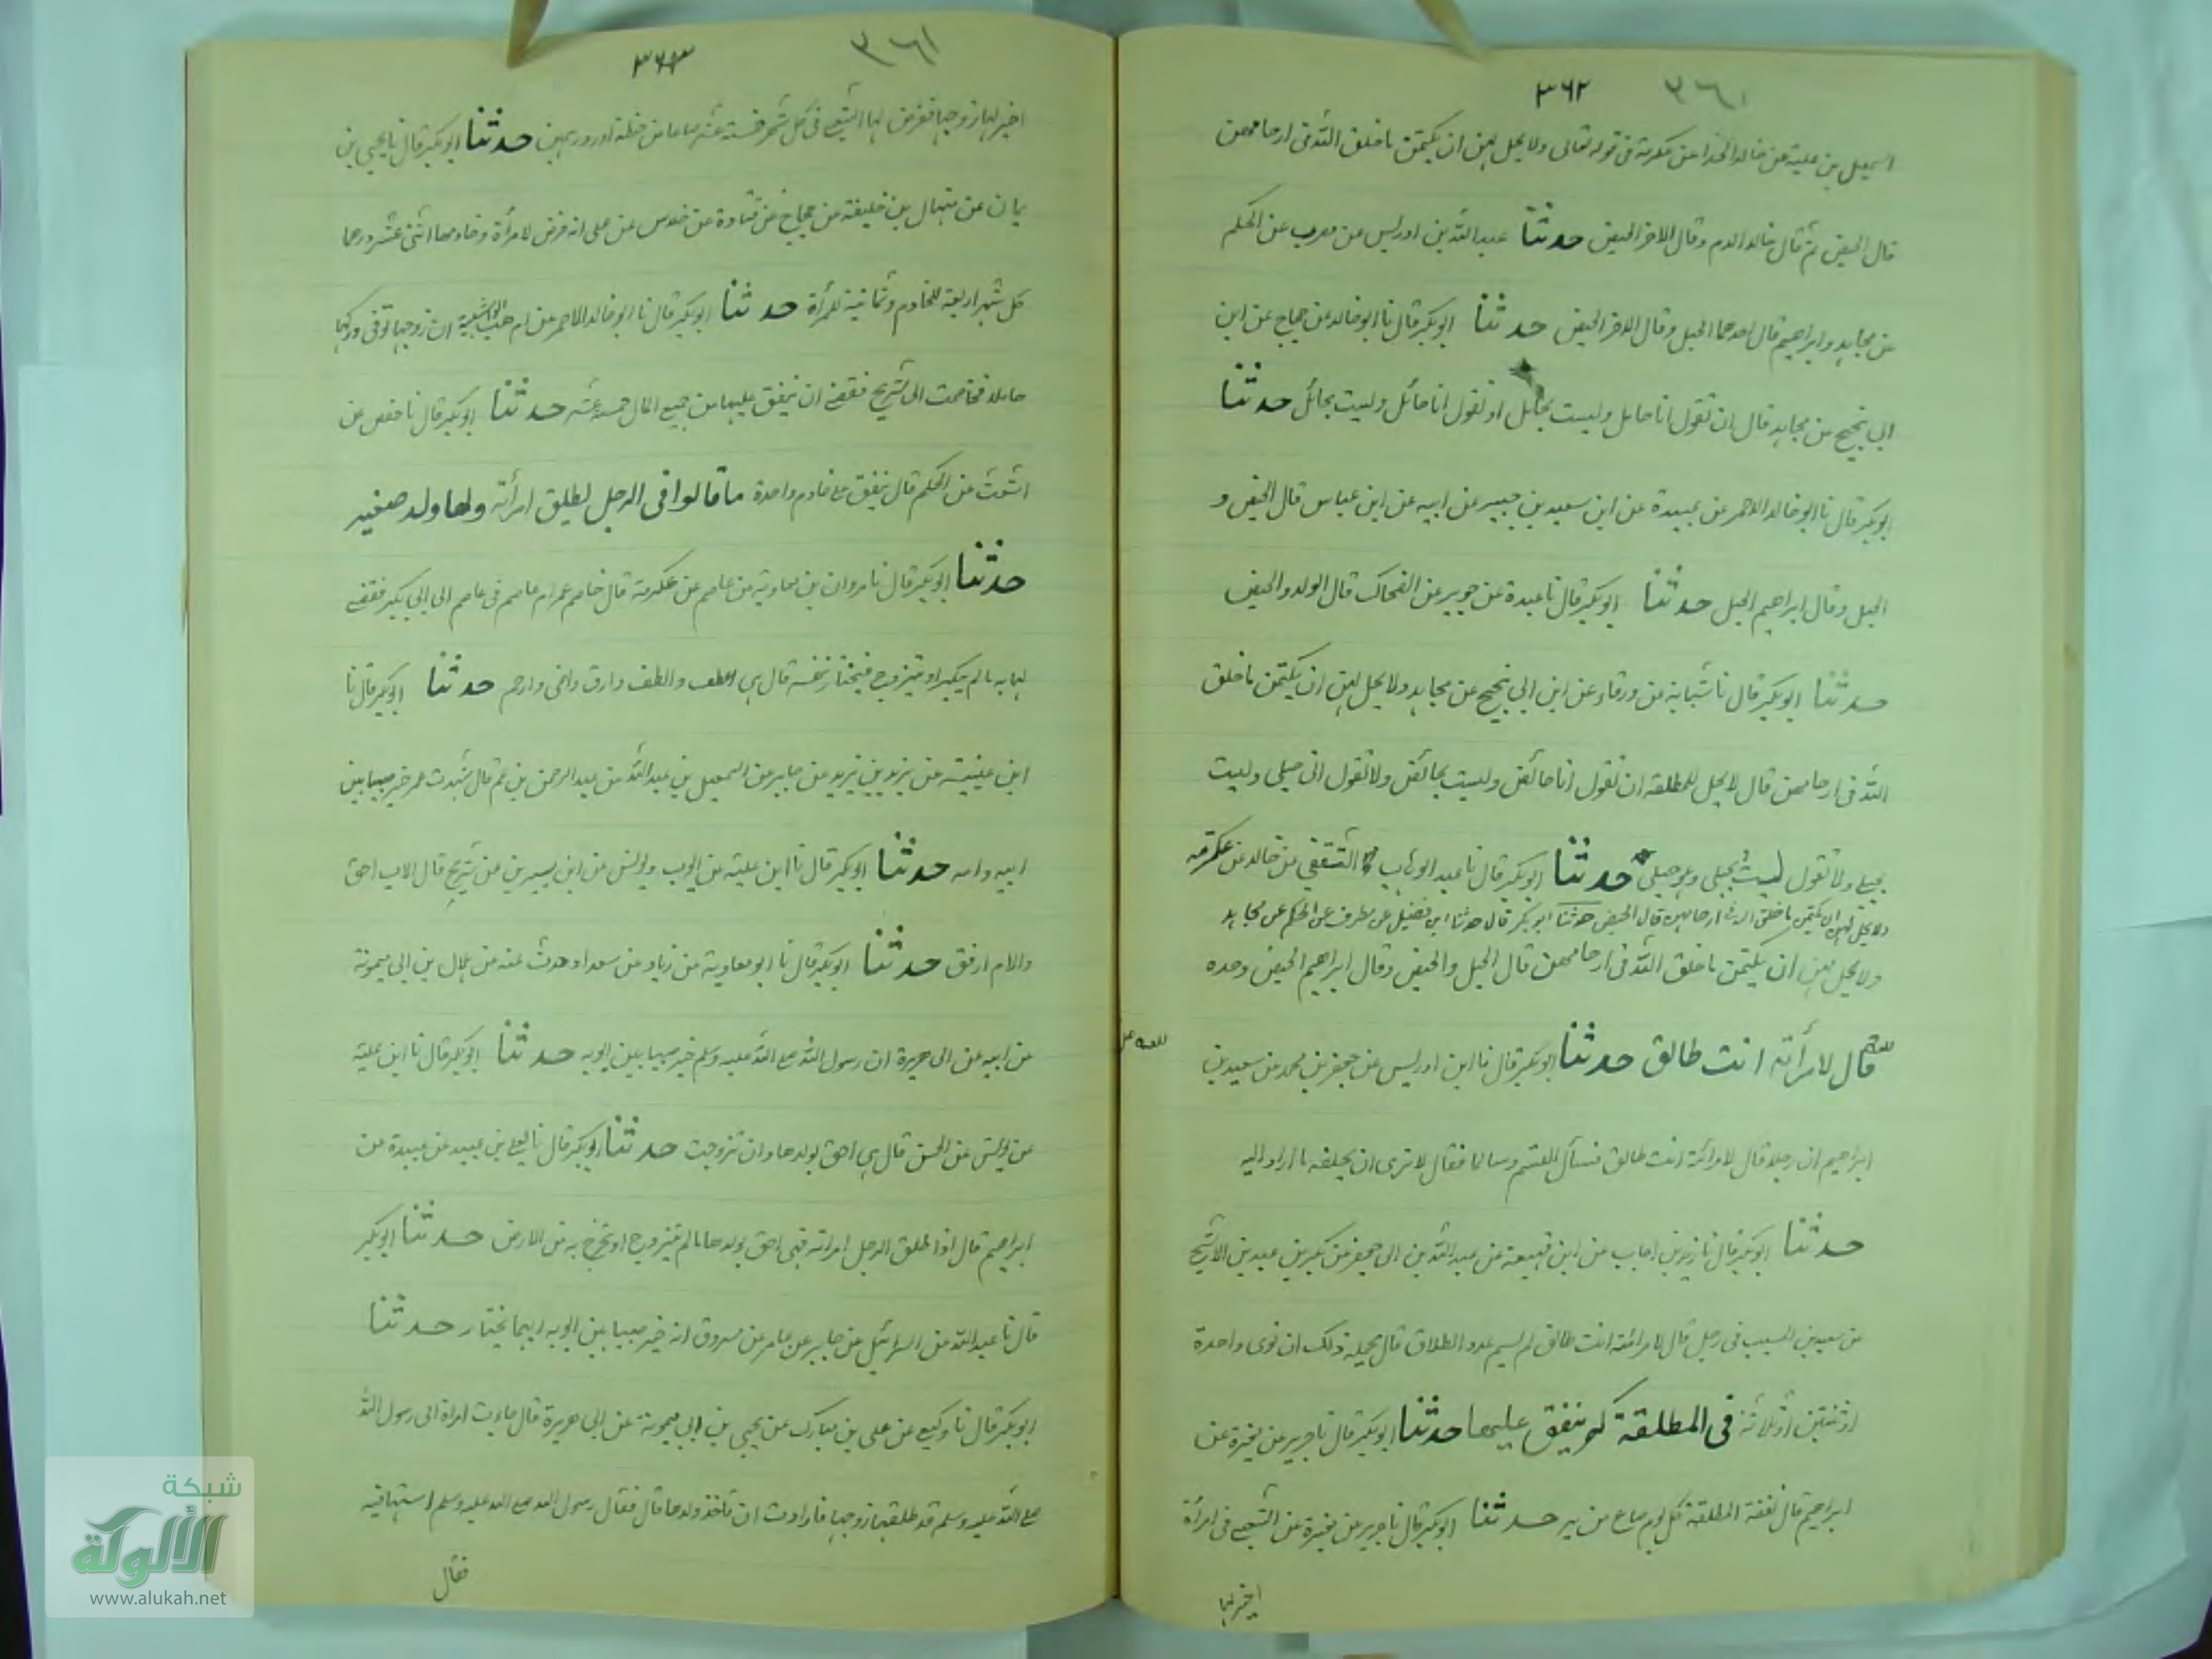 ٣٦١ ٣٦٢
اسمعيل بن علية عن خالد الحذا عن عكرمة فى قوله تعالى ولا يحل لهن ان يكتمن ما خلق الله فى ارحامهن
قال الحيض ثم قال خالد الدم وقال الاخر الحيض حدثنا عبدالله بن ادريس عن عن الحكم
عن مجاهد وابراهيم قال احدهما الحبل وقال الاخر الحيض حدثنا ابوبكر قال نا ابوخالد عن حجاج عن ابن
ابى نجيح عن مجاهد قال ان تقول انا حامل وليست بحامل او تقول انا حائل وليست بحائل حدثنا
ابوبكر قال نا ابوخالد الاحمر عن عبيدة عن ابن سعيد بن جبير عن ابيه عن ابن عباس قال الحيض و
الحبل وقال ابراهيم الحبل حدثنا ابوبكر قال نا عبدة عن جويبر عن الضحاك قال الولد والحيض
حدثنا ابوبكر قال نا شبابة عن ورقاء عن ابن ابى نجيح عن مجاهد ولا يحل لهن ان يكتمن ما خلق
الله فى ارحامهن قال لا يحل للمطلقة ان تقول انا حائض وليست بحائض ولا تقول انى حبلى وليست
بحبلى ولا تقول ليست بحبلى وهو حبلى حدثنا ابوبكر قال نا عبد الوهاب الثقفي عن خالد عن عكرمة
ولا يحل لهن ان يكتمن ما خلق الله فى ارحامهن قال الحيض حدثنا ابوبكر قال حدثنا ابن فضيل عن مطرف عن الحكم عن مجاهد
ولا يحل لهن ان يكتمن ما خلق الله فى ارحامهن قال الحبل والحيض وقال ابراهيم الحيض وحده
قال لامرأته انت طالق حدثنا ابوبكر قال نا ابن ادريس عن جعفر بن محمد عن سعيد بن
ابراهيم ان رجلا قال لامرأته انت طالق فسأل القسم وسالما فقال لا نرى ان يحلفه ما اراد اليه
حدثنا ابوبكر قال نا زيد بن احباب عن ابن لهيعة عن عبيد الله بن ابى جعفر عن بكير بن عبد بن الاشج
عن سعيد بن المسيب فى رجل قال لامرأته انت طالق لم يسم عدد الطلاق قال يحمله ذلك ان نوى واحدة
او ثنتين او ثلاثة فى المطلقة كم ينفق عليها حدثنا ابوبكر قال نا جرير عن مغيرة عن
ابراهيم قال نفقة المطلقة كل يوم صاع من بر حدثنا ابوبكر قال نا جرير عن مغيرة عن الشعبى فى امرأة
اخبر لها
٣٦١ ٣٦٣
اخبر لها زوجها ففرض لها الشعبى فى كل شهر خمسة عشر صاعا من حنطة او درهمين حدثنا ابوبكر قال نا يحيى بن
يمان عن منهال بن خليفة عن حجاج عن قتادة عن خلاس عن على انه فرض لامرأة وخادمها اثنى عشر درهما
كل شهر اربعة للخادم وثمانية للمرأة حدثنا ابوبكر قال نا ابوخالد الاحمر عن ام ان زوجها توفى وتركها
حاملا فخاصمت الى شريح فقضى ان ينفق عليها من جميع المال خمسة عشر حدثنا ابوبكر قال نا حفص عن
اشعث عن الحكم قال ينفق على خادم واحدة ما قالوا فى الرجل يطلق امرأته ولها ولد صغير
حدثنا ابوبكر قال نا مروان بن معاوية عن عاصم عن عكرمة قال خاصم عمر ام عاصم فى عاصم الى ابى بكر فقضى
لها به ما لم يكبر او يتزوج فيختار لنفسه قال هى اعطف والطف وارق واحنى وارحم حدثنا ابوبكر قال نا
ابن عيينة عن يزيد بن يزيد عن جابر عن اسمعيل بن عبيد الله عن عبد الرحمن بن غنم قال شهدت عمر خير صبيا بين
ابيه وامه حدثنا ابوبكر قال نا ابن علية عن ايوب ويونس عن ابن سيرين عن شريح قال الاب احق
والام ارفق حدثنا ابوبكر قال نا ابو معاوية عن زياد عن سعد او حدث عنه عن هلال بن ابى ميمونة
عن ابيه عن ابى هريرة ان رسول الله صلى الله عليه وسلم خير صبيا بين ابويه حدثنا ابوبكر قال نا ابن علية
عن يونس عن الحسن قال هى احق بولدها وان تزوجت حدثنا ابوبكر قال نا يعلى بن عبيد عن عبيدة عن
ابراهيم قال اذا طلق الرجل امراته فهى احق بولدها ما لم يتزوج او تخرج به من الارض حدثنا ابوبكر
قال نا عبيد الله عن اسرائيل عن جابر عن عامر عن مسروق انه خير صبيا بين ابويه ايهما يختار حدثنا
ابوبكر قال نا وكيع عن على بن مبارك عن يحيى بن ابى ميمونة عن ابى هريرة قال جاءت امراة الى رسول الله
صلى الله عليه وسلم قد طلقها زوجها فارادت ان تأخذ ولدها قال فقال رسول الله صلى الله عليه وسلم استهما فيه
فقال
شبكة
الألوكة
www.alukah.net